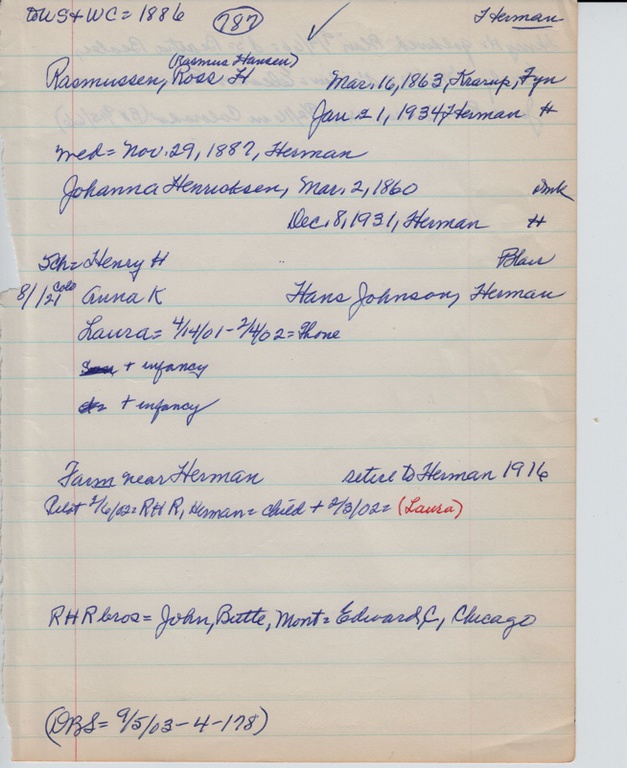 to US + WC = 1886 787 ✓ Herman
(Rasmus Hansen)
Rasmussen, Ross H Mar. 16, 1863, Krarup, Fyn
Jan 21, 1934, Herman H
med = Nov. 29, 1887, Herman
Johanna Henricksen, Mar. 2, 1860 Dmk
Dec. 8, 1931, Herman H
Sch = Henry H Blair
8/1/21 Colo Anna K Hans Johnson, Herman
Laura = 4/14/01 - 2/4/02 = Phone
+ infancy
+ infancy
Farm near Herman retire to Herman 1916
Pilot 2/6/02 = RHR, Herman = child + 2/3/02 = (Laura)
RHR bros = John, Butte, Mont = Edward C, Chicago
(DBS = 9/5/03 - 4 - 178)